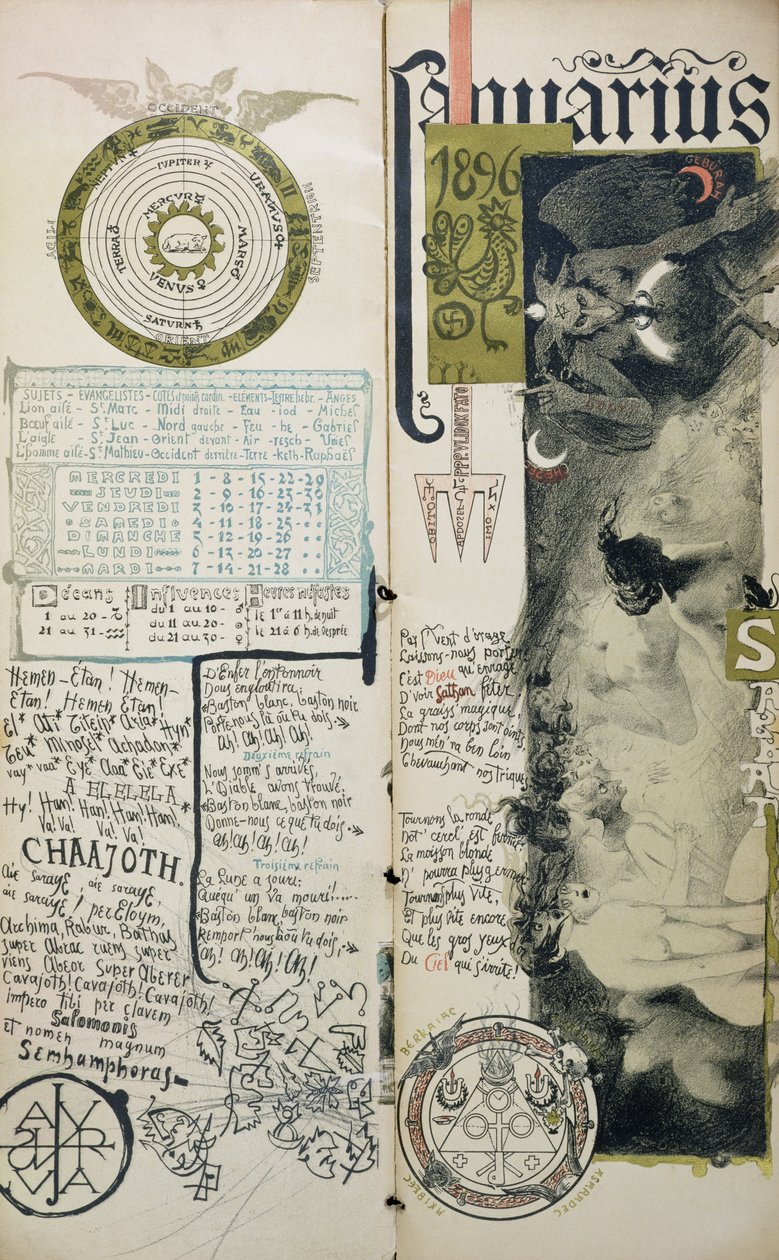 OCCIDENT
SEPTENTRION
MIDY
ORIENT
NEPTUN
IUPITER ♃
URANUS
MERCUR ☿
TERRA
MARS ♂
VENUS ♀
SATURN ♄
SUJETS - EVANGELISTES - COTES et points cardin. - ELEMENTS - LETTRE hebr. - ANGES
Lion ailé - St Marc - Midi droite - Eau - iod - Michel
Bœuf ailé - St Luc - Nord gauche - Feu - he - Gabriel
L'aigle - St Jean - Orient devant - Air - resch -
L'homme ailé - St Mathieu - Occident derrière - Terre - keth - Raphaël
MERCREDI 1 - 8 - 15 - 22 - 29
JEUDI 2 - 9 - 16 - 23 - 30
VENDREDI 3 - 10 - 17 - 24 - 31
SAMEDI 4 - 11 - 18 - 25
DIMANCHE 5 - 12 - 19 - 26
LUNDI 6 - 13 - 20 - 27
MARDI 7 - 14 - 21 - 28
Décans Influences Heures néfastes
1 au 20 - ♑ du 1 au 10 - ♂ le 1er à 11 h. de nuit
21 au 31 - ♒ du 11 au 20 - le 21 à 6 h. de vesprée
du 21 au 30 - ♀
Hemen-Etan! Hemen-
Etan! Hemen Etan!
El* Ati* Titeip* Azia* Hyn*
Teu* Minosel* Achadon*
vay* vaa* Eye* Aaa* Eie* Exe*
A EL EL EL A
Hy! Hau! Hau! Hau! Hau!
Va! Va! Va! Va!
CHAAJOTH.
Aie saraye, aie saraye,
aie saraye! per Eloym,
Archima, Rabur, Bathas
super Abrac ruens super
viens Abeor Super Aberer
Cavajoth! Cavajoth! Cavajoth!
impero tibi per clavem
Salomonis
et nomen magnum
Semhamphoras_
D'Enfer l'entonnoir
Vous engloutira;
Baston blanc, baston noir
Porte nous là où tu dois,
Ah! Ah! Ah! Ah!
Deuxième refrain
Nous somm's arrivés,
L'Diable avons trouvé,
Baston blanc, baston noir
Donne-nous ce que tu dois.
Ah! Ah! Ah! Ah!
Troisième refrain
La Lune a souri;
Quéqu' un va mouri!....
Baston blanc, baston noir
Remport' nous où tu dois,
Ah! Ah! Ah! Ah!
Januarius
1896
GEBURAH
OBITO
Par l'vent d'orage
Laissons-nous porter
C'est Dieu qu'enrage
D'voir Sathan fêter
La graiss' magique
Dont nos corps sont oints,
Nous mèn'ra ben loin
Chevauchant nos triques
Tournons la ronde
Not' cercl' est fermé
La moisson blonde
N' pourra plus germer
Tournons plus vite,
Et plus vite encore
Que les gros yeux d'or
Du Ciel qui s'irrite!
SABBAT
BERKAIAC
AKIBEEC
ASMARDEC